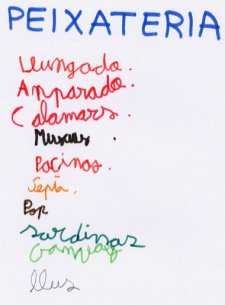 PEIXATERIA
Llungado.
Anparado.
Calamars.
Musus.
Pocinos.
Sepia.
Pop
Sardinas
Gambas
llus